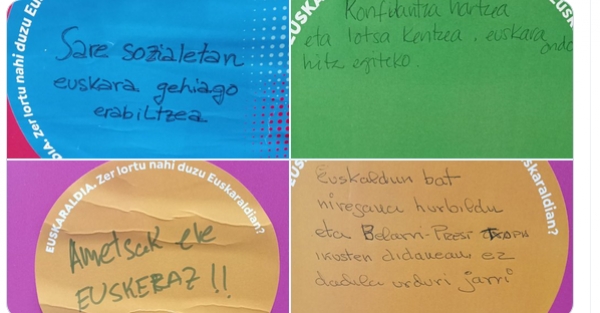 EUSKARALDIA. Zer lortu nahi duzu Euskaraldian?
Sare sozialetan
euskara gehiago
erabiltzea
Konfidantza hartzea
eta lotsa kentzea, euskara ondo
hitz egiteko.
EUSKARALDIA. Zer lortu nahi duzu Euskaraldian?
Ametsak ere
EUSKERAZ !!
skaraldian?
Euskaldun bat
niregana hurbildu
eta Belarri-Prest
ikusten didanean ez
dadila urduri jarri